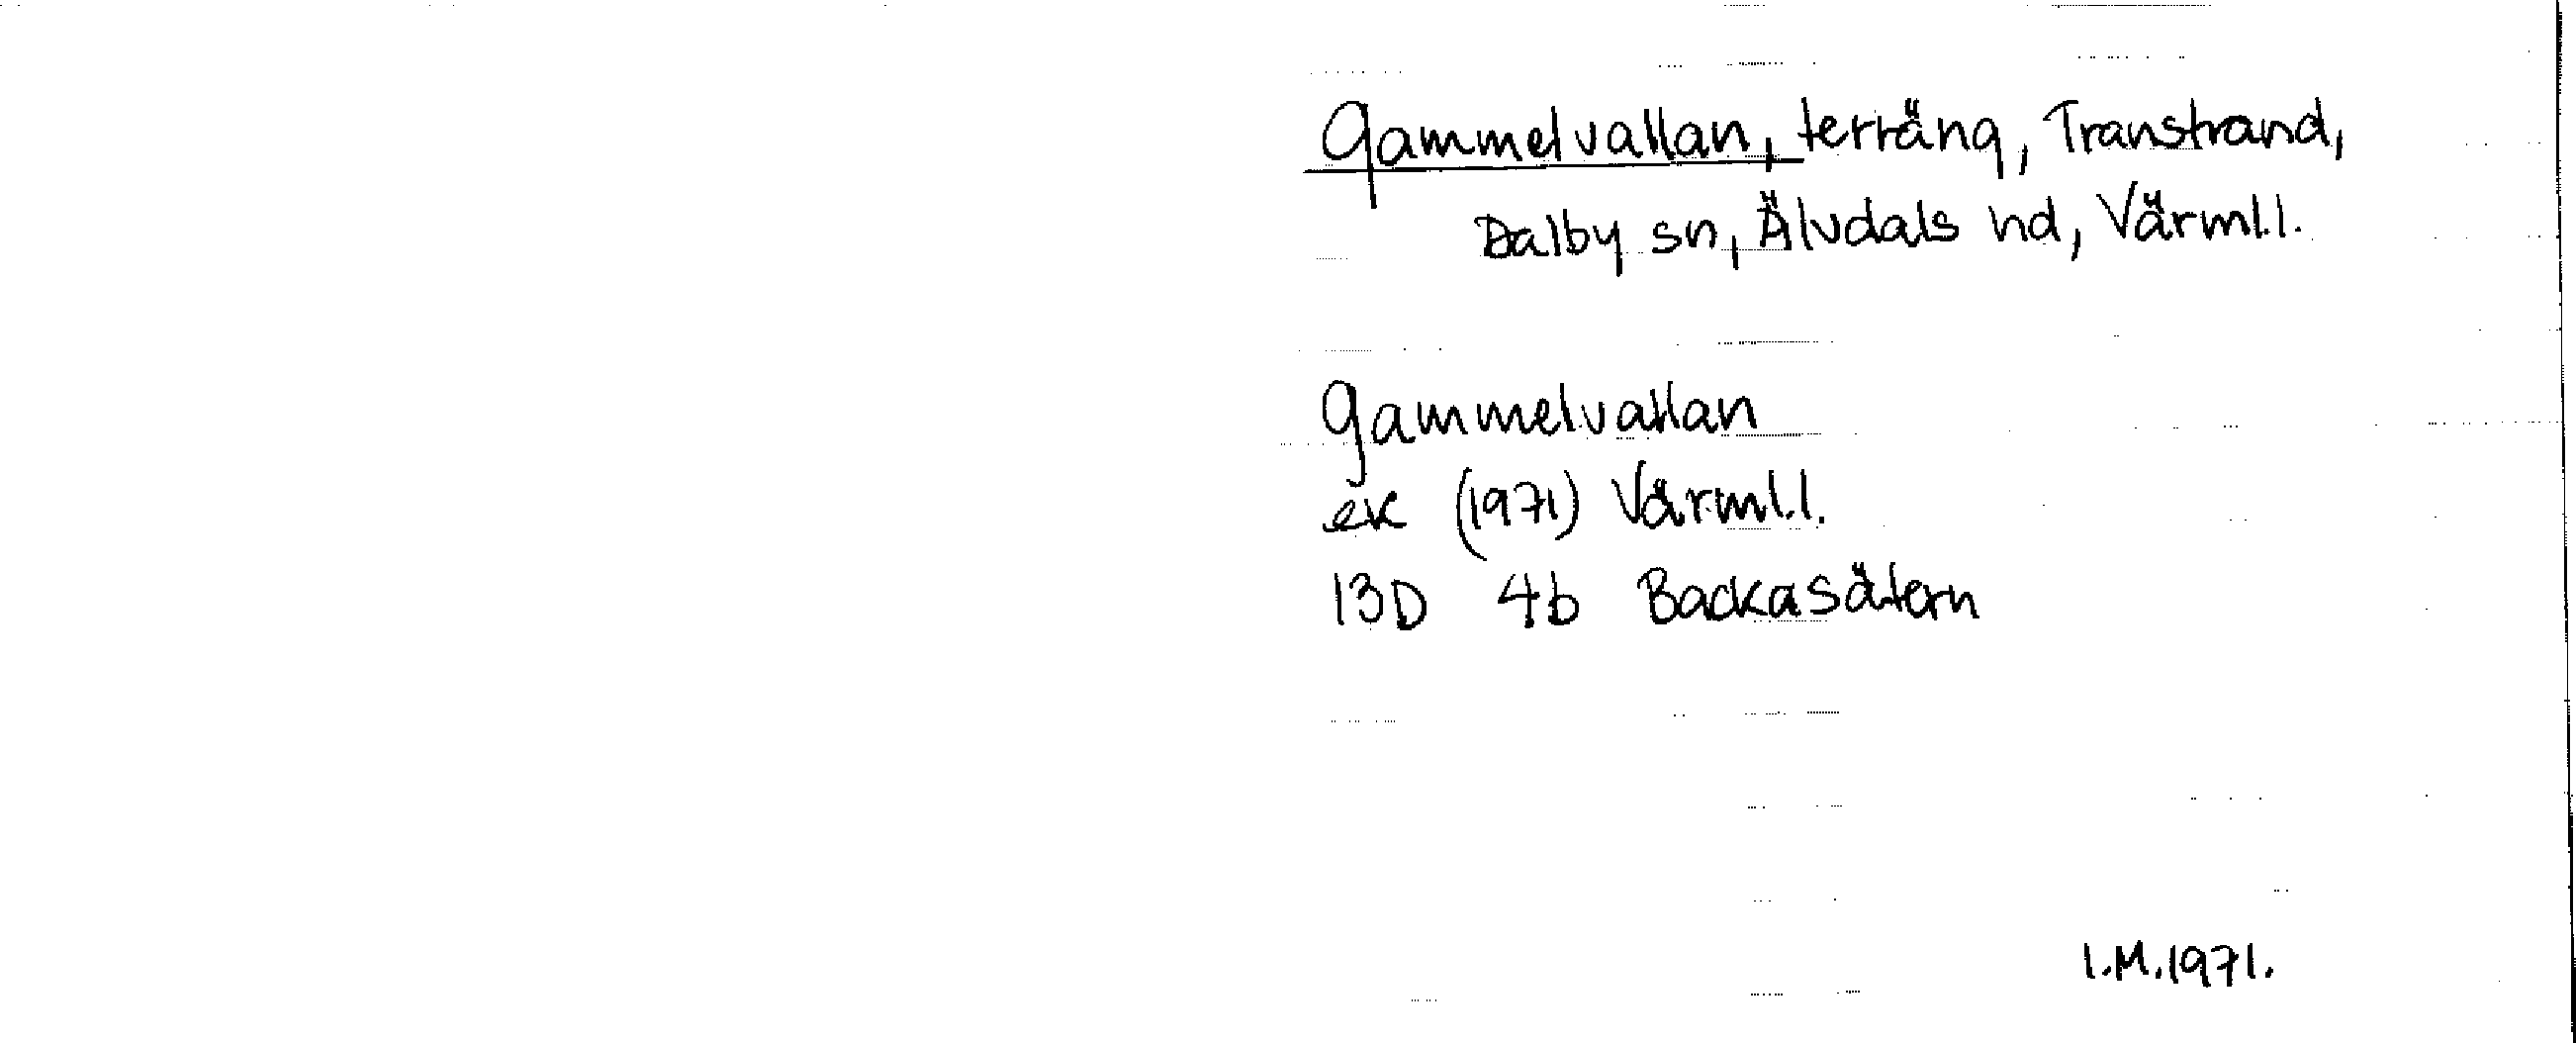 Gammelvallan, terräng, Transtrand,
Dalby sn, Älvdals hd, Värml.l.
Gammelvallan
ek (1971) Värml.l.
13D 4b Backasätern
I.M.1971.